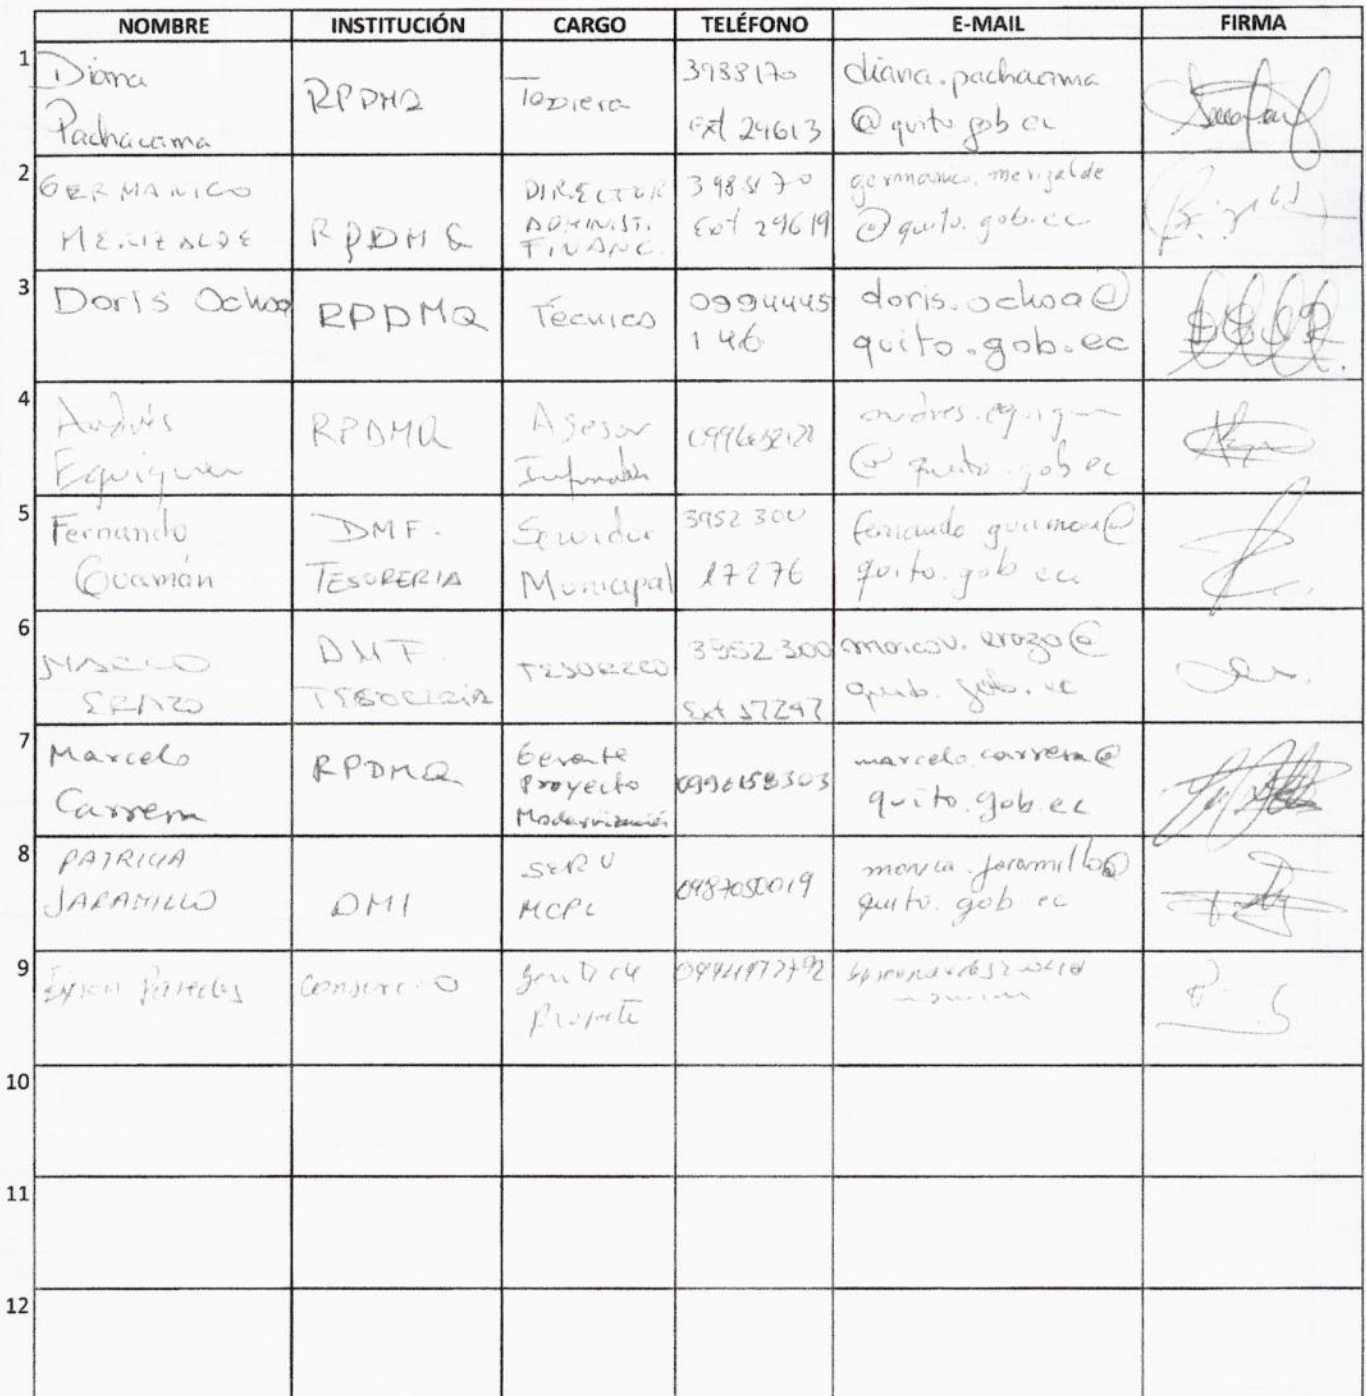 NOMBRE INSTITUCIÓN CARGO TELÉFONO E-MAIL FIRMA
1
Diana
Pachacama
RPDMQ
3988170
ext 29613
diana.pachacama
@quito.gob.ec
2
GERMANICO
MERIZALDE
RPDMQ
DIRECTOR
ADMINIST.
FINANC.
398 8170
Ext 29619
germanico.merizalde
@quito.gob.ec
3
Doris Ochoa
RPDMQ
Técnico
0994445
146
doris.ochoa@
quito.gob.ec
4
Andrés
Eguiguren
RPDMQ
Asesor
@quito.gob.ec
5
Fernando
Guamán
DMF.
TESORERIA
Servidor
Municipal
3952 300
17276
fernando.guaman@
quito.gob.ec
6
MARCO
ERAZO
DMF.
TESORERIA
TESORERO
3952 300
Ext 17247
marcov.erazo@
quito.gob.ec
7
Marcelo
Carrera
RPDMQ
Gerente
Proyecto
Modernización
0996158303
marcelo.carrera@
quito.gob.ec
8
PATRICIA
JARAMILLO
DMI
SERV
MCPL
0987050019
monica.jaramillo@
quito.gob.ec
9
Byron Paredes
Consorcio
Proyecto
10
11
12